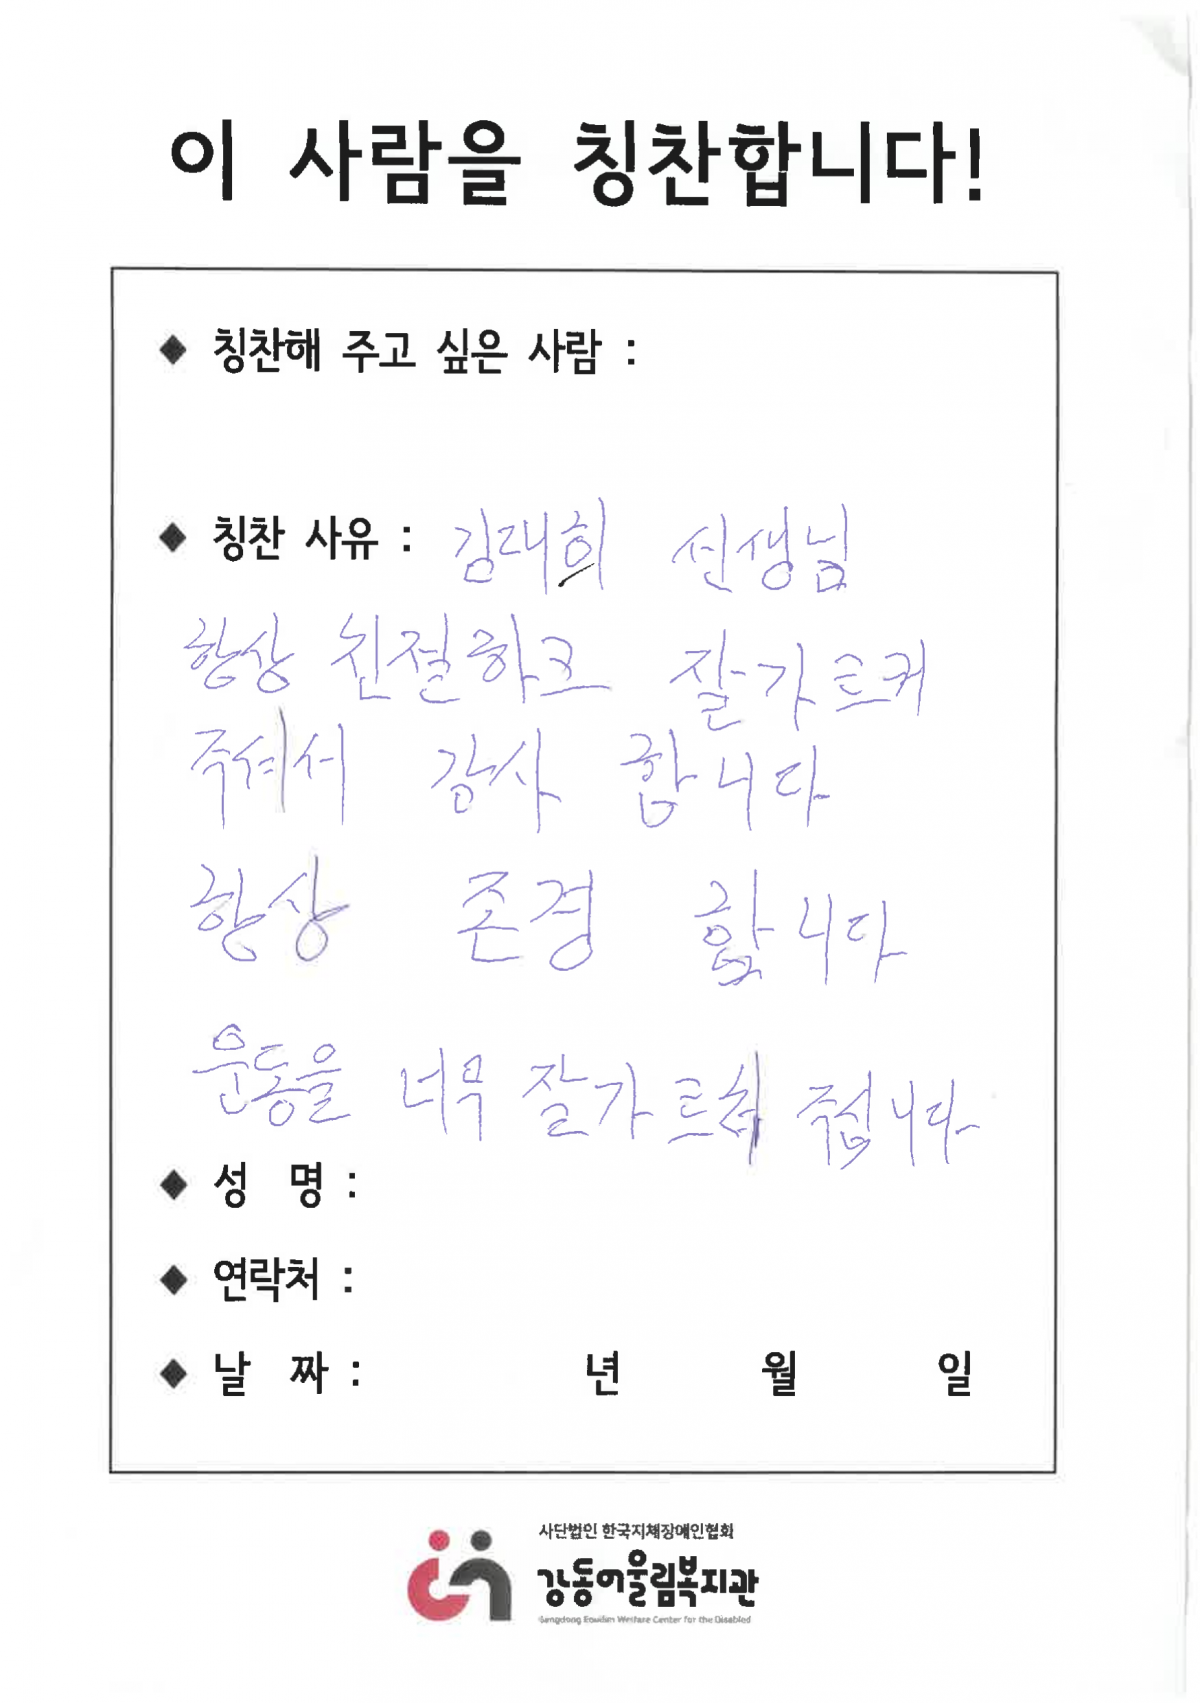 이 사람을 칭찬합니다!
◆ 칭찬해 주고 싶은 사람 :
◆ 칭찬 사유 : 김대희 선생님
항상 친절하고 잘가르켜
주셔서 감사 합니다
항상 존경 합니다
운동을 너무 잘가르쳐 줍니다
◆ 성 명 :
◆ 연락처 :
◆ 날 짜 : 년 월 일
사단법인 한국지체장애인협회
강동어울림복지관
Gangdong Eoullim Welfare Center for the Disabled